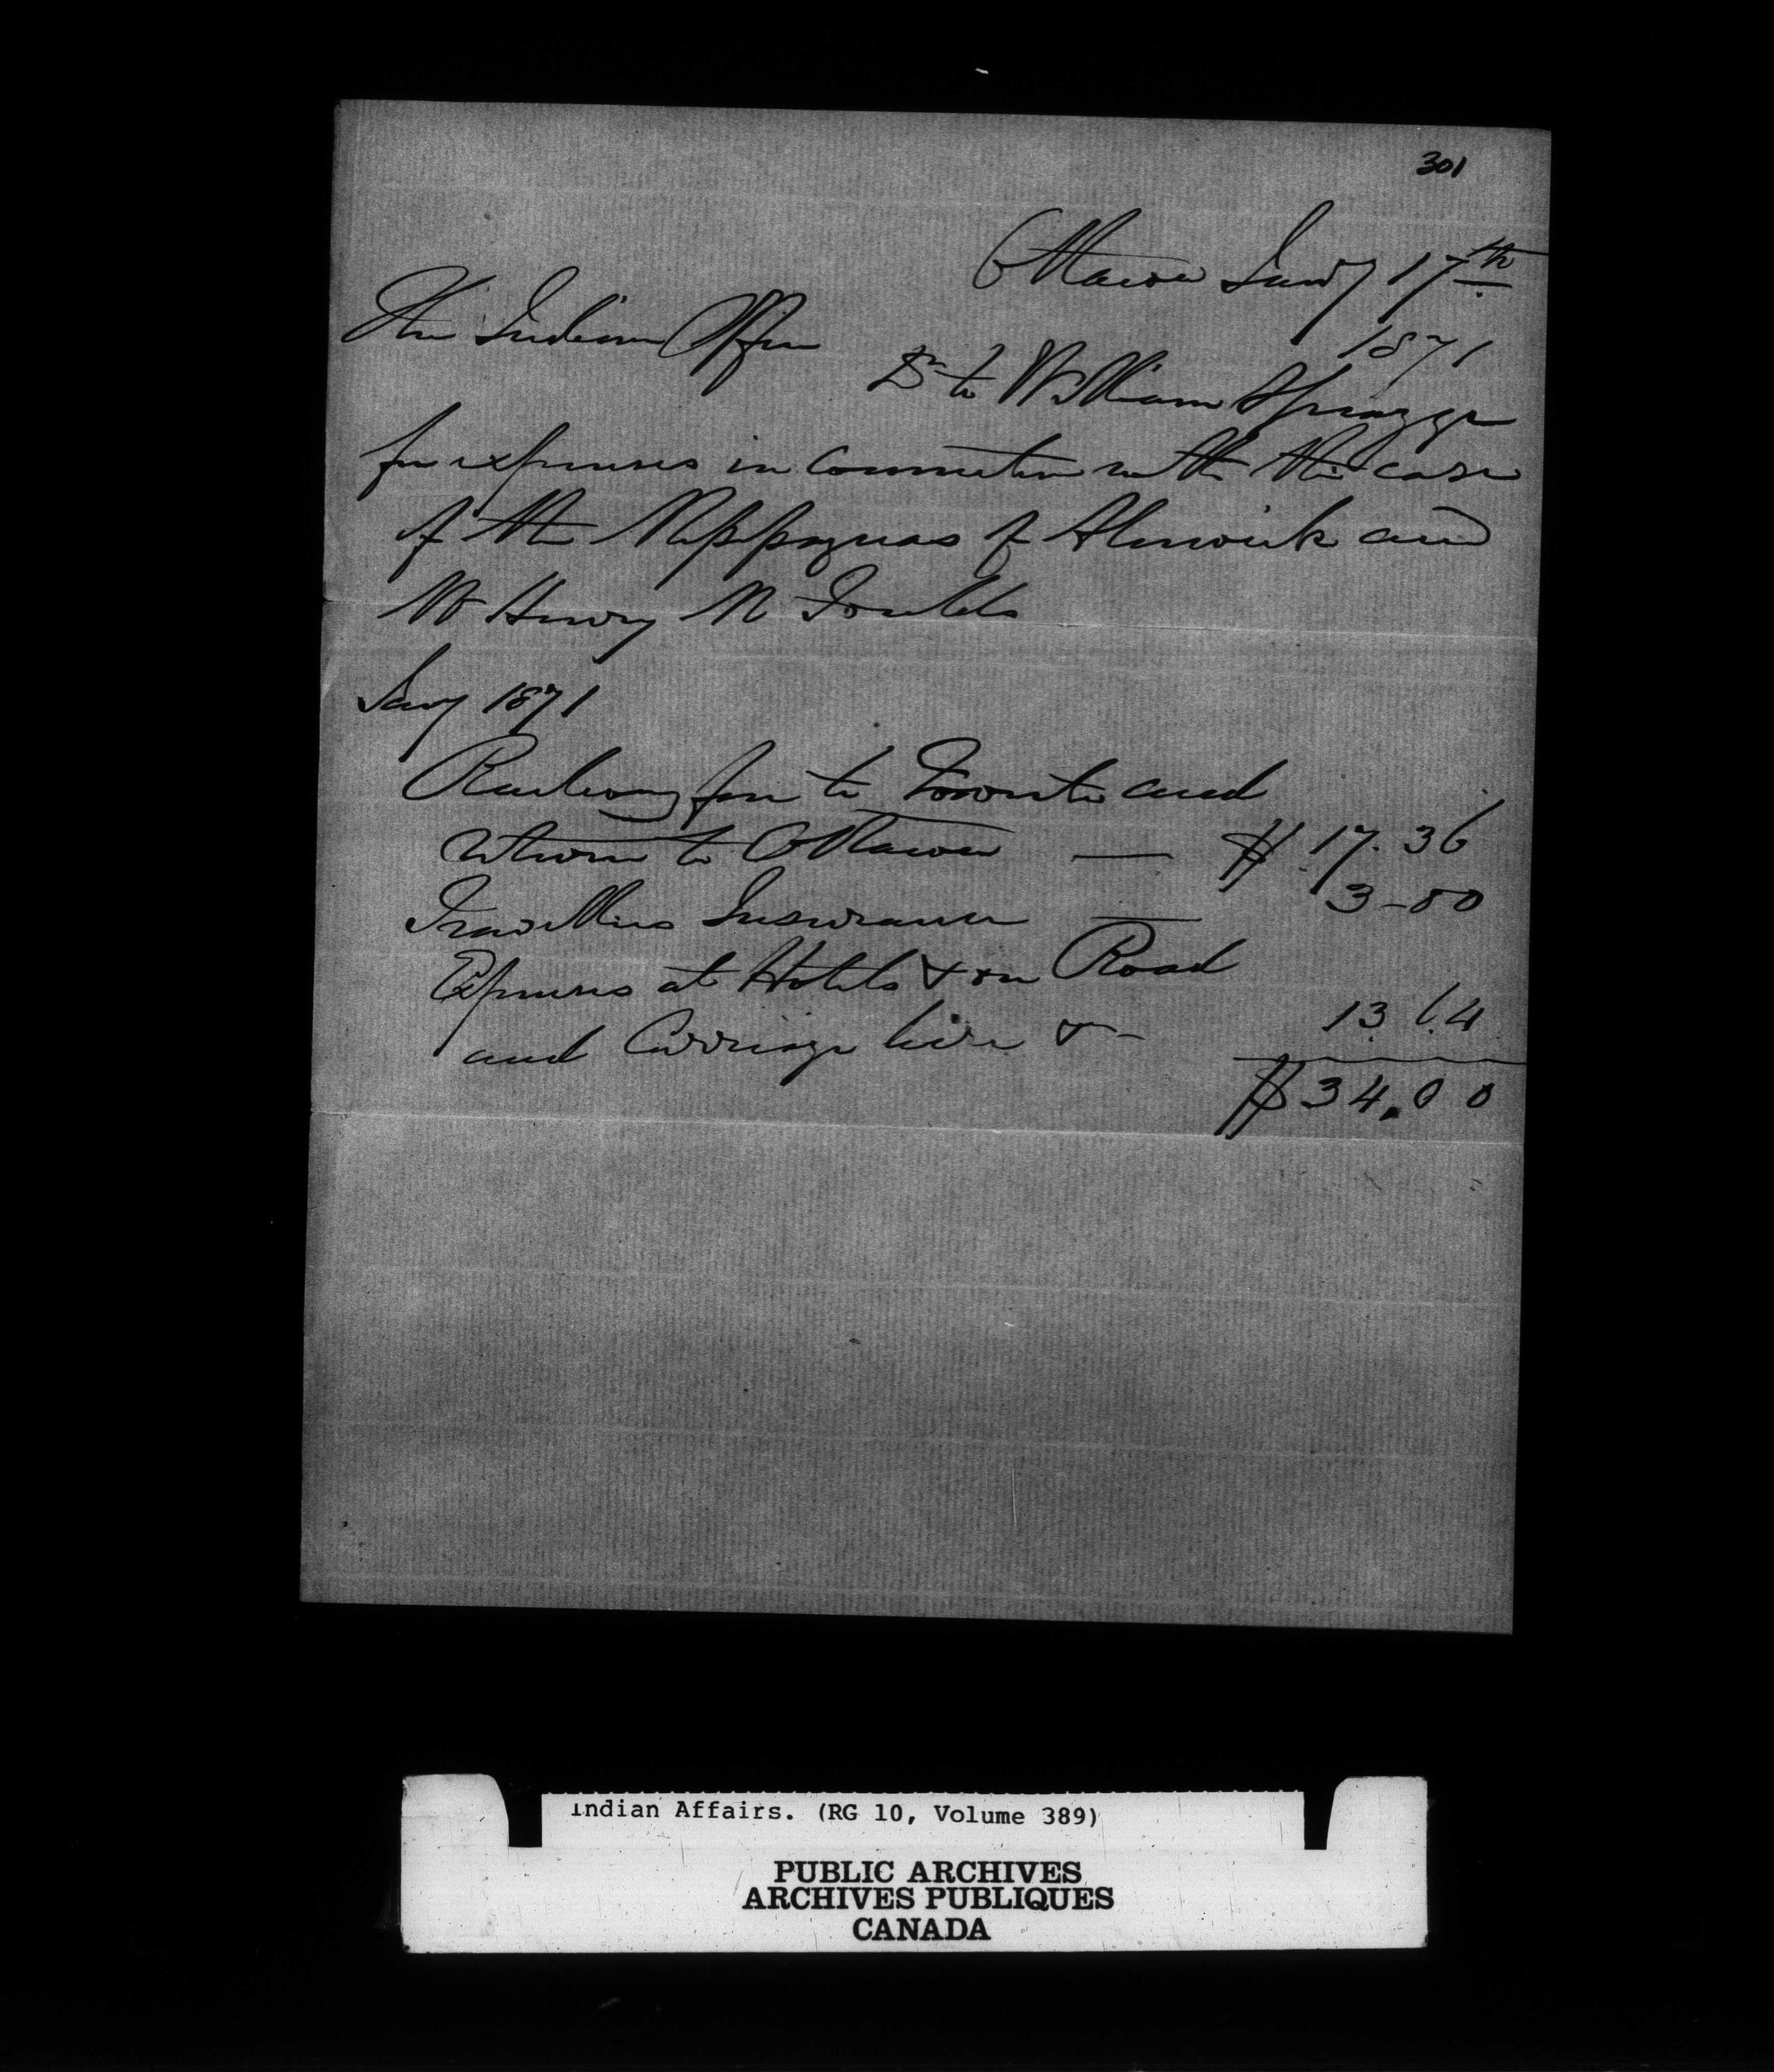 301
Ottawa Jany 17th
1871
The Indian Office
Dr to William Spragge
for expenses in connection with the case
of the Mississaguas of Alnwick and
Henry M Foulds
Jany 1871
Railway fare to Toronto and
return to Ottawa — $17.36
Travellers Insurance — 3-00
Expenses at Hotels & on Road
and Carriage hire & - 13.64
$34.00
Indian Affairs. (RG 10, Volume 389)
PUBLIC ARCHIVES
ARCHIVES PUBLIQUES
CANADA